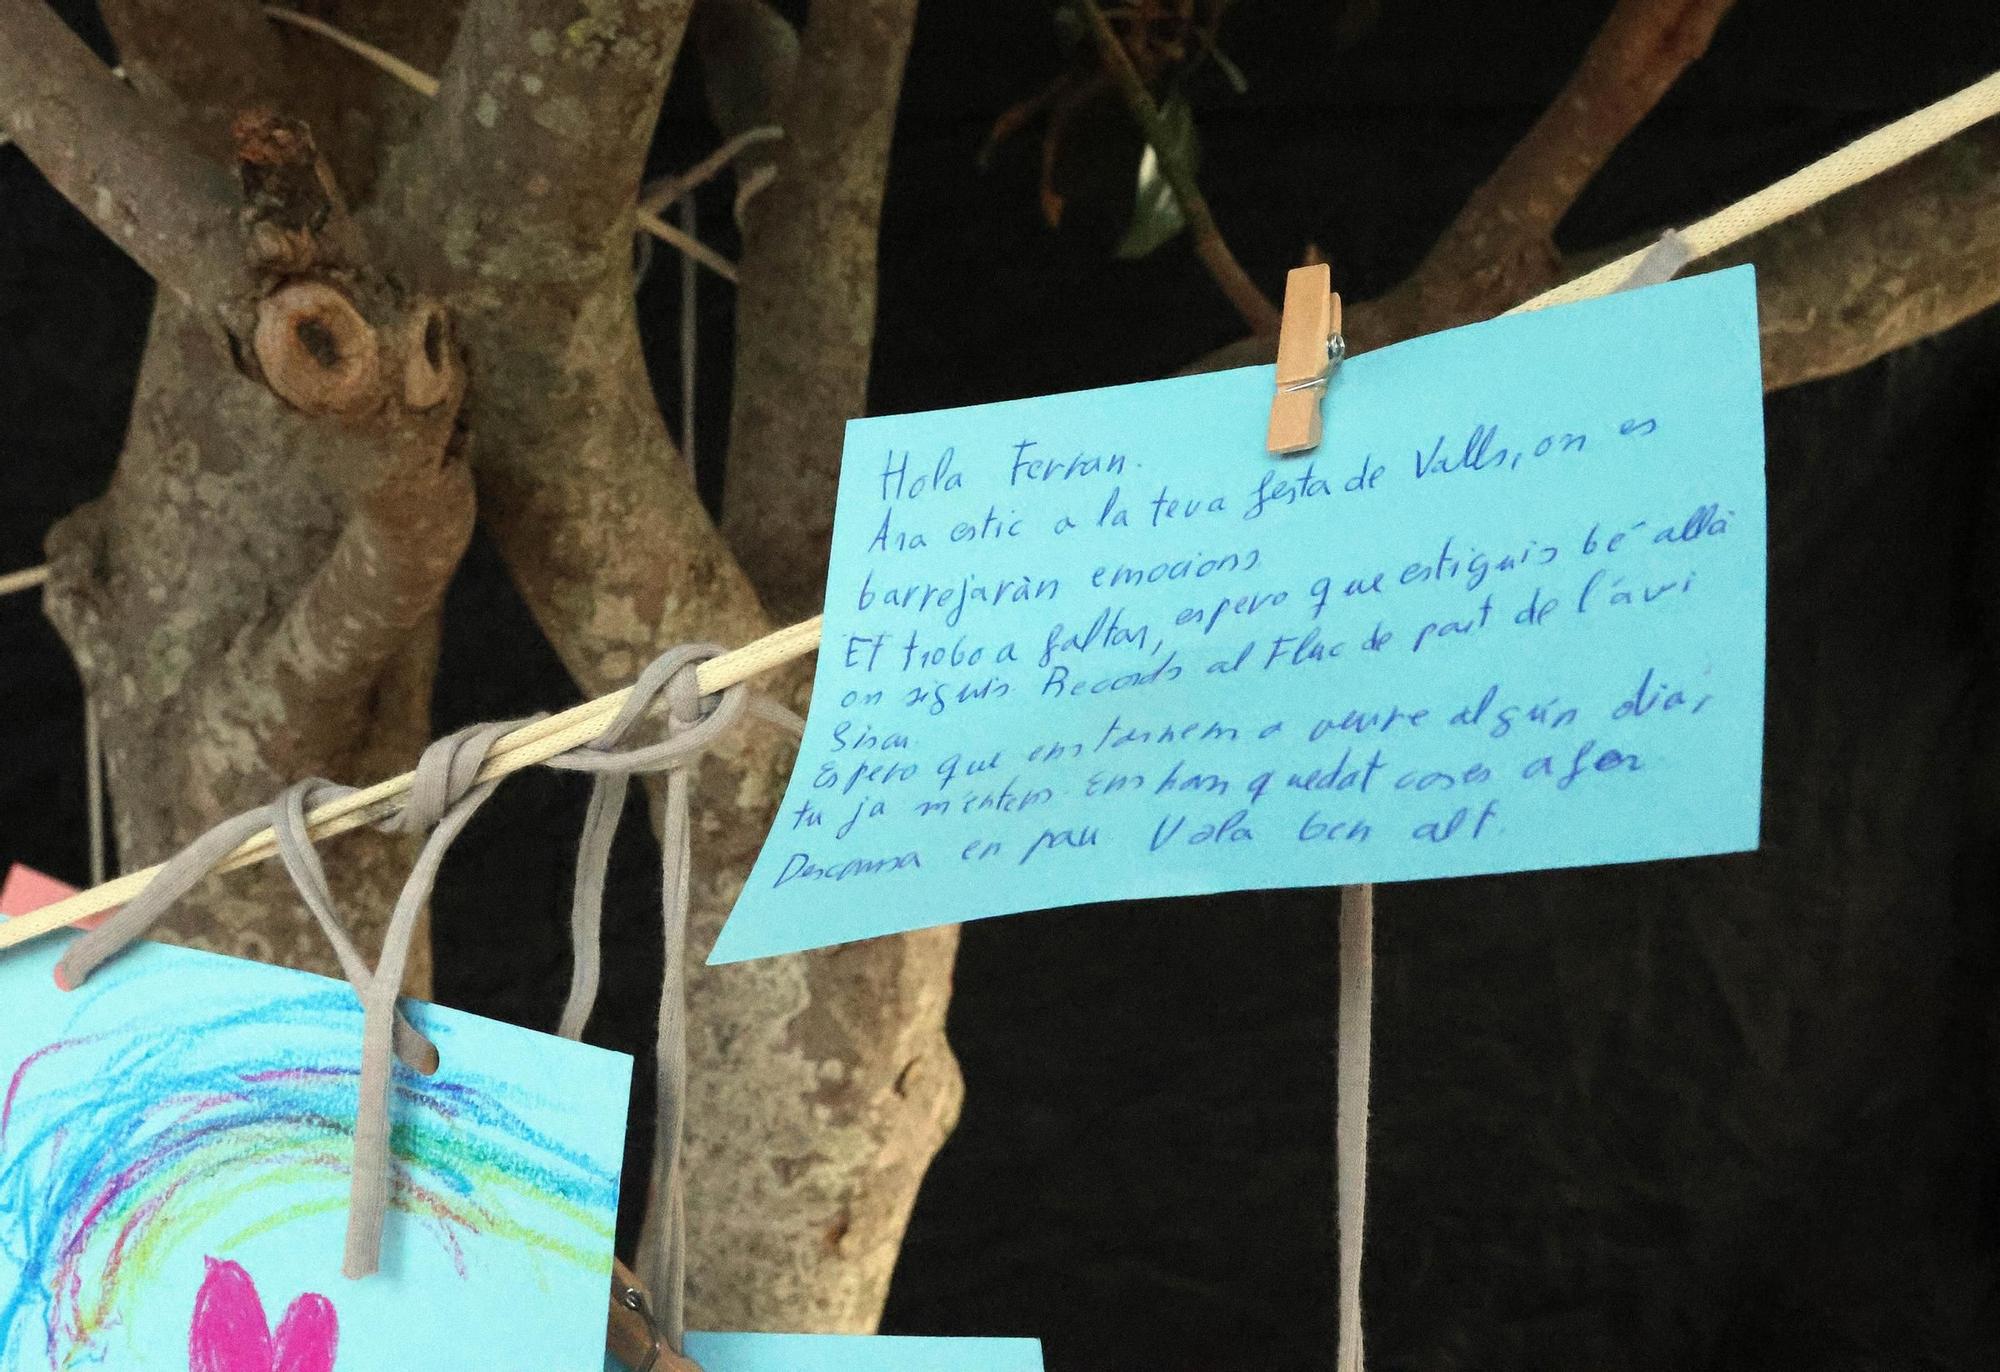 Hola Ferran.
Ara estic a la teva festa de Valls, on es
barrejaràn emocions
Et trobo a faltar, espero que estiguis bé allà
on siguis. Records al Fluc de part de l'ávi
Espero que ens tornem a veure algún dia,
tu ja m'entens. Ens han quedat coses a fer
Descansa en pau Vola ben alt.